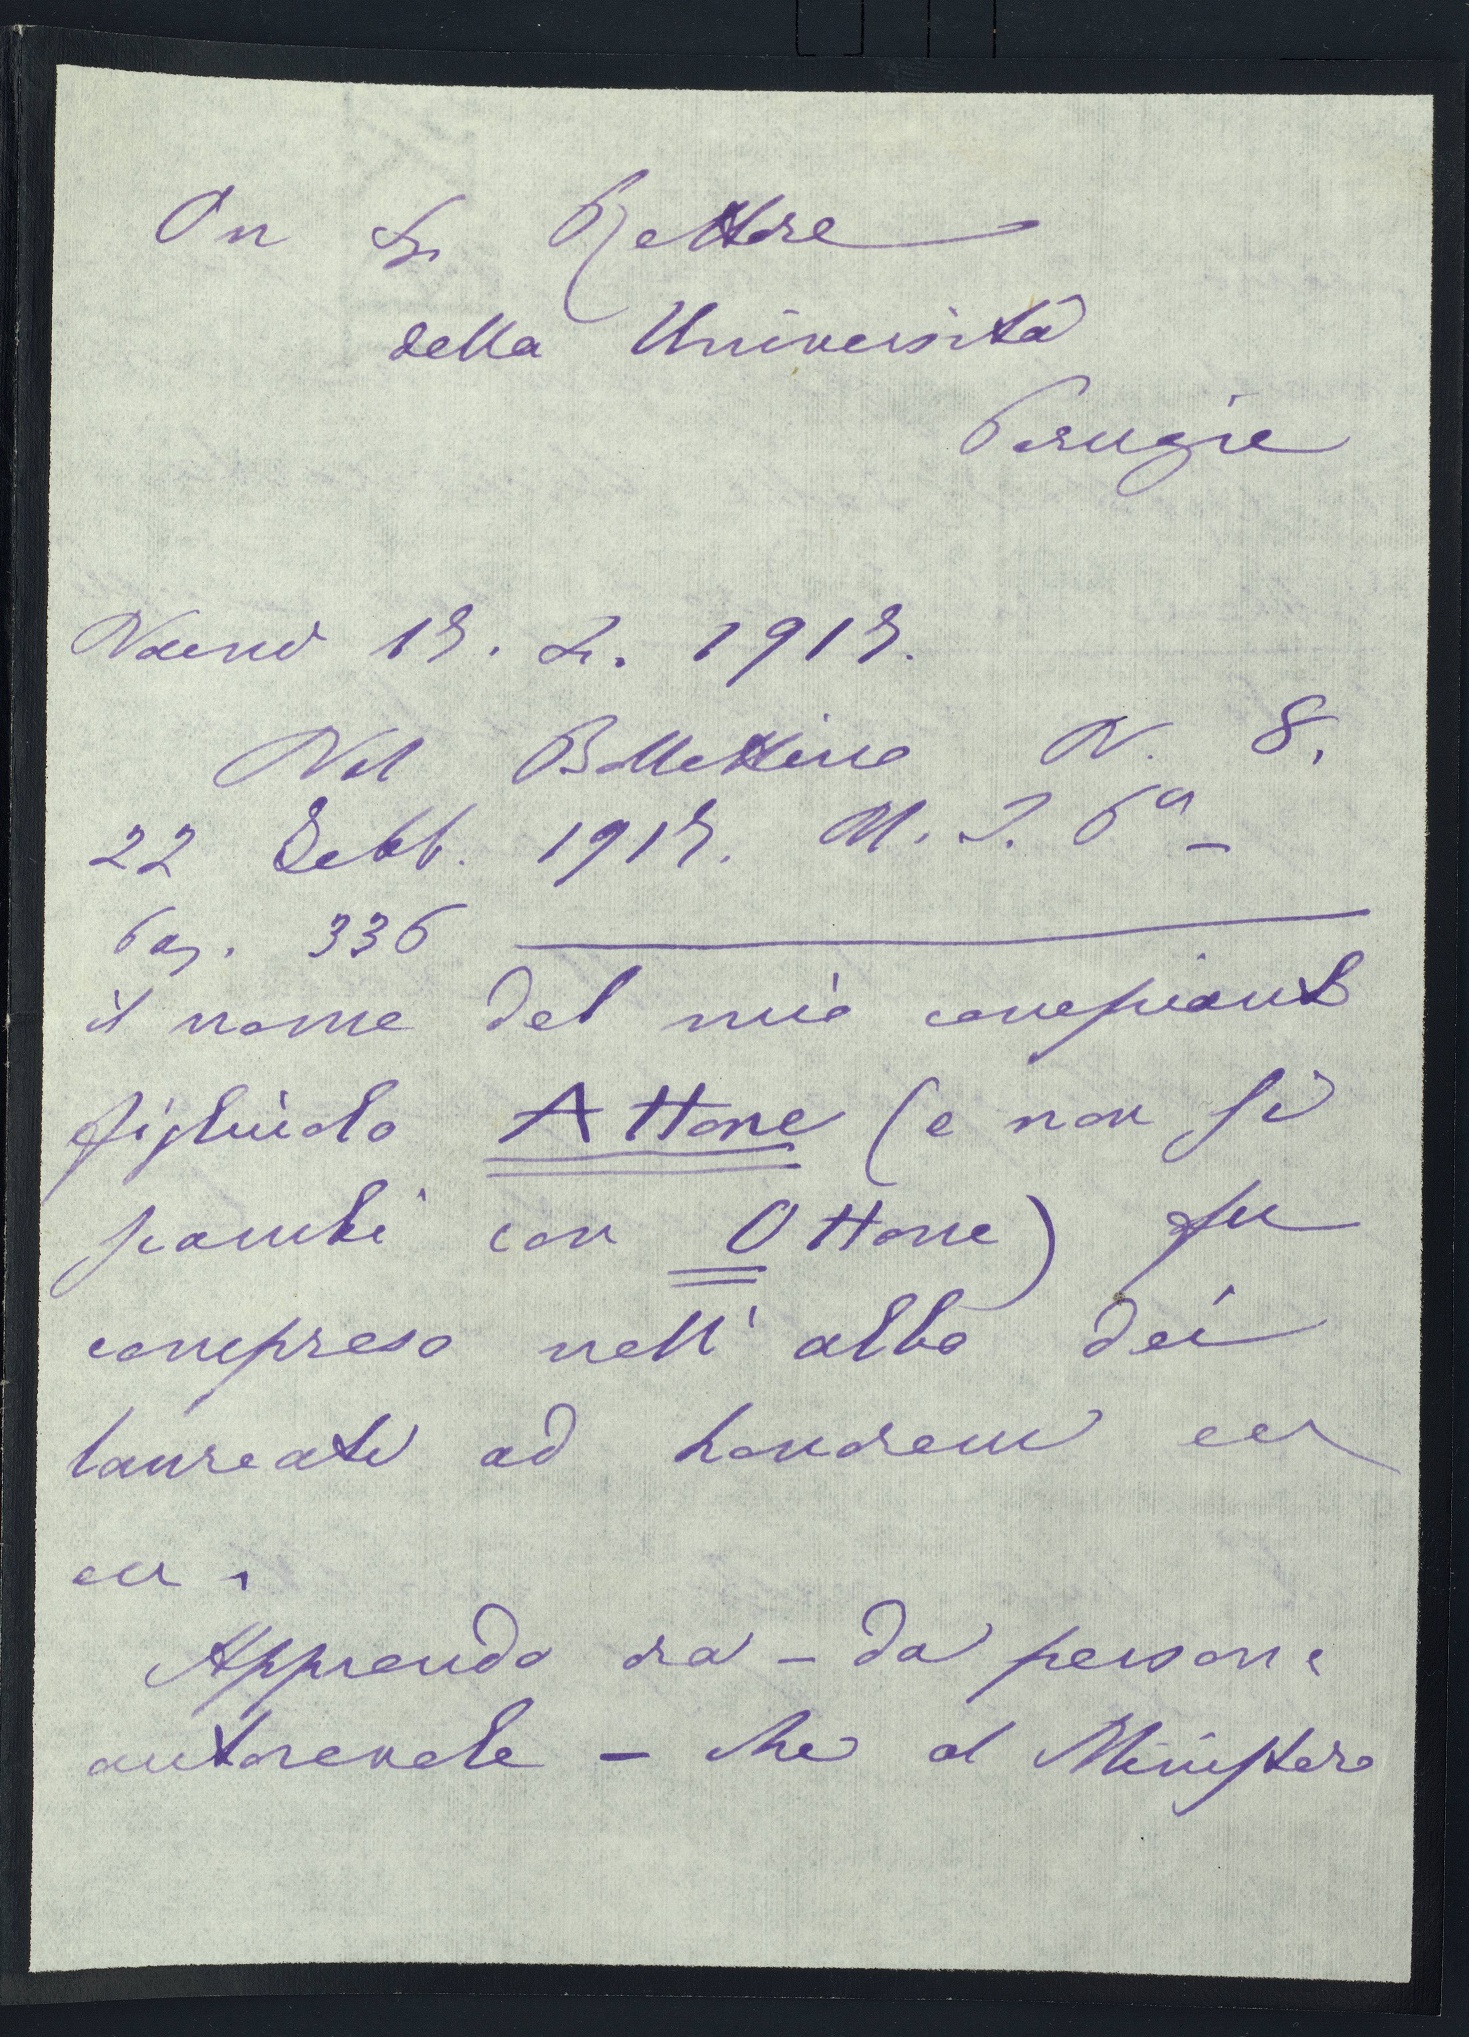 On Sr Rettore
della Università
Perugia
15. 2. 1915.
Nel Bollettino N. 8,
22 Febb. 1915. M. I. Pa
Pag. 336
il nome del mio compianto
figliuolo Attone (e non si
scambi con Ottone) fu
compreso nell' albo dei
laureati ad honorem ecc
ecc.
Apprendo ora - da persona
autorevole - che al Ministero